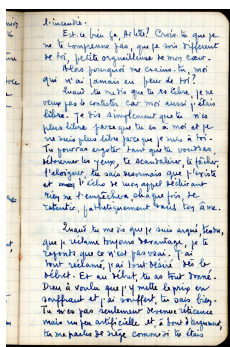 l'incendie.
Est-ce bien ça, Arlette? Crois-tu que je
ne te comprenne pas, que je sois différent
de toi, petite orgueilleuse de mon cœur.
Alors pourquoi me crains-tu, moi
qui n'ai jamais eu peur de toi?
Quand tu me dis que tu es libre, je ne
veux pas le contester, car moi aussi j'étais
libre. Je dis simplement que tu n'es
plus libre parce que tu es à moi et je
ne suis plus libre parce que je suis à toi.
Tu pourras ergoter tant que tu voudras
détourner les yeux, te scandaliser, te fâcher,
t'éloigner, tu sais désormais que j'existe
et l'écho de mon appel déchirant
rien ne l'empêchera, chaque fois, de
retentir, pathétiquement dans ton âme.
Quand tu me dis que je suis exigeant,
que je réclame toujours davantage, je te
réponds que ce n'est pas vrai. J'ai
tout réclamé, j'ai tout désiré dès le
début. Et au début, tu as tout donné.
Dieu a voulu que j'y mette le prix en
souffrant et j'ai souffert, tu sais bien.
Tu n'es pas seulement devenue réticente
mais un peu artificielle et, à bout d'argument,
tu me parles de siège comme si tu étais